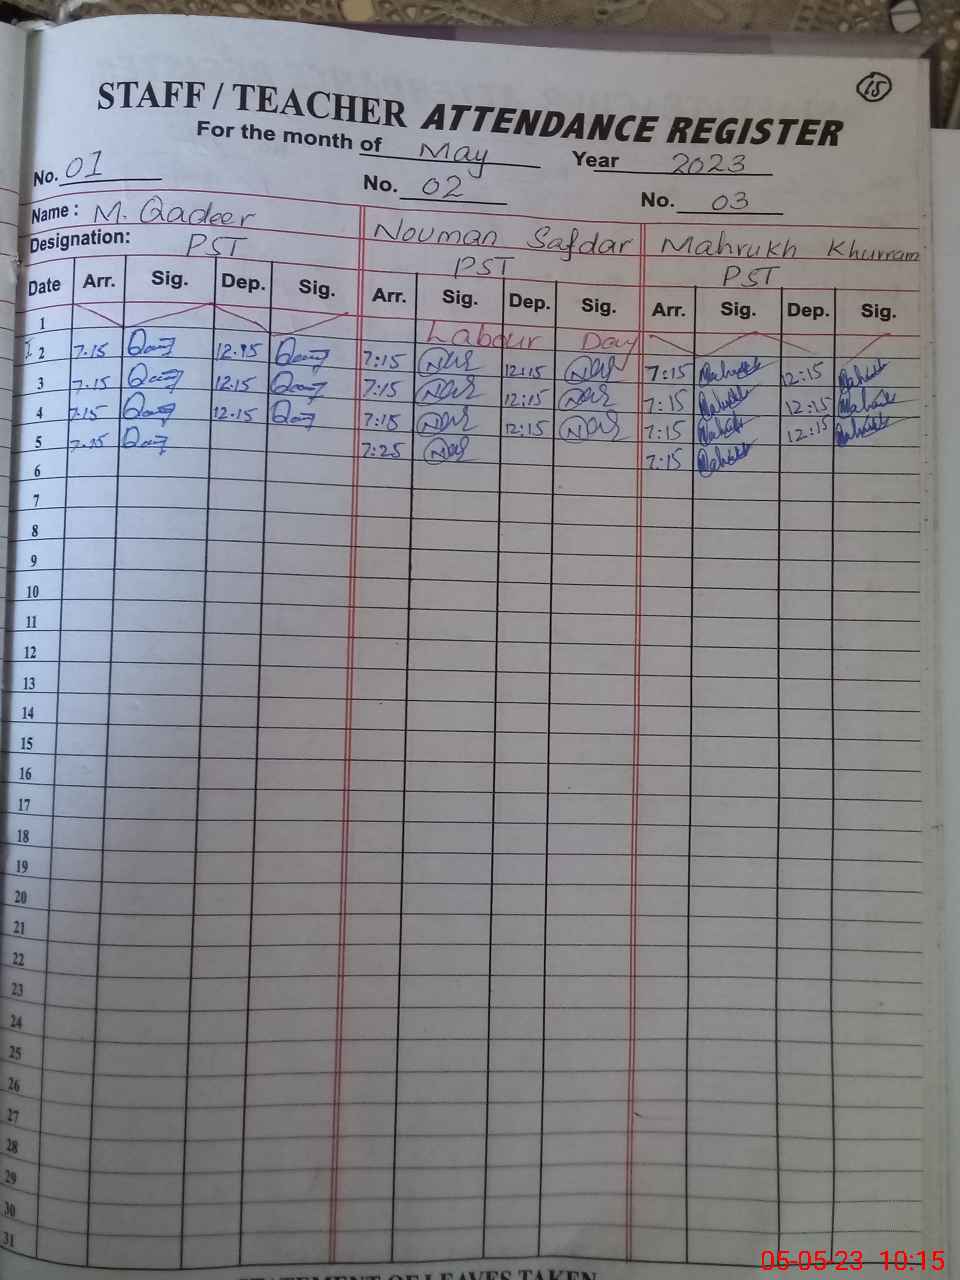 15
STAFF / TEACHER ATTENDANCE REGISTER
For the month of May Year 2023
No. 01 No. 02 No. 03
Name : M. Qadeer Nouman Safdar Mahrukh Khurram
Designation: PST PST PST
Date Arr. Sig. Dep. Sig. Arr. Sig. Dep. Sig. Arr. Sig. Dep. Sig.
1 Labour Day
2 7.15 12.15 7:15 12:15 7:15 12:15
3 7.15 12.15 7:15 12:15 7:15 12:15
4 7.15 12.15 7:15 12:15 7:15 12:15
5 7.15 7:25 7:15
6
7
8
9
10
11
12
13
14
15
16
17
18
19
20
21
22
23
24
25
26
27
28
29
30
31
STATEMENT OF LEAVES TAKEN
05-05-23 10:15